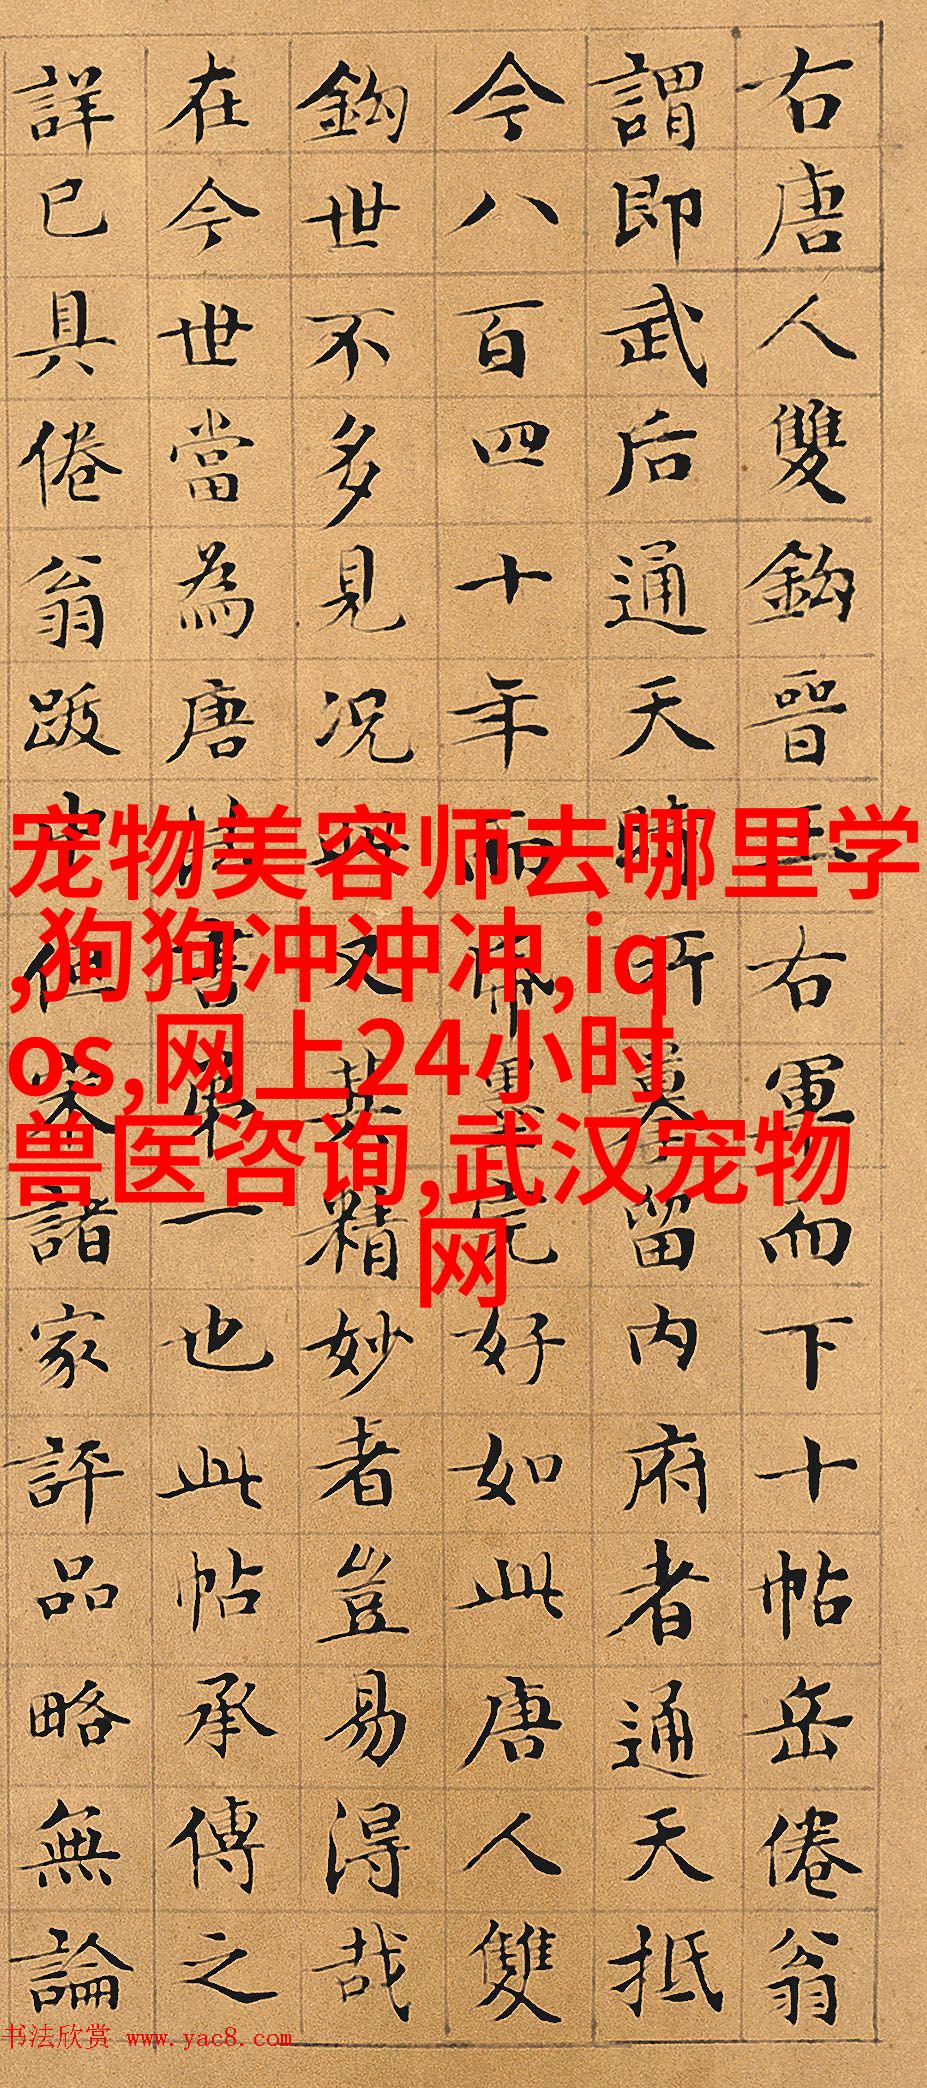 右唐人雙鈎晉王右軍而下十帖岳倦翁
謂即武后通天時所摹留内府者通天抵
今八百四十年而墨完好如此唐人雙
鈎世不多見况又其精妙者豈易得哉
在今世當為唐法書第一也此帖承傳之
詳已具倦翁跋中但宋諸家評品略無論
宠物美容师去哪里学
,狗狗冲冲冲,iq
os,网上24小时
兽医咨询,武汉宠物
网
书法欣赏 www.yac8.com